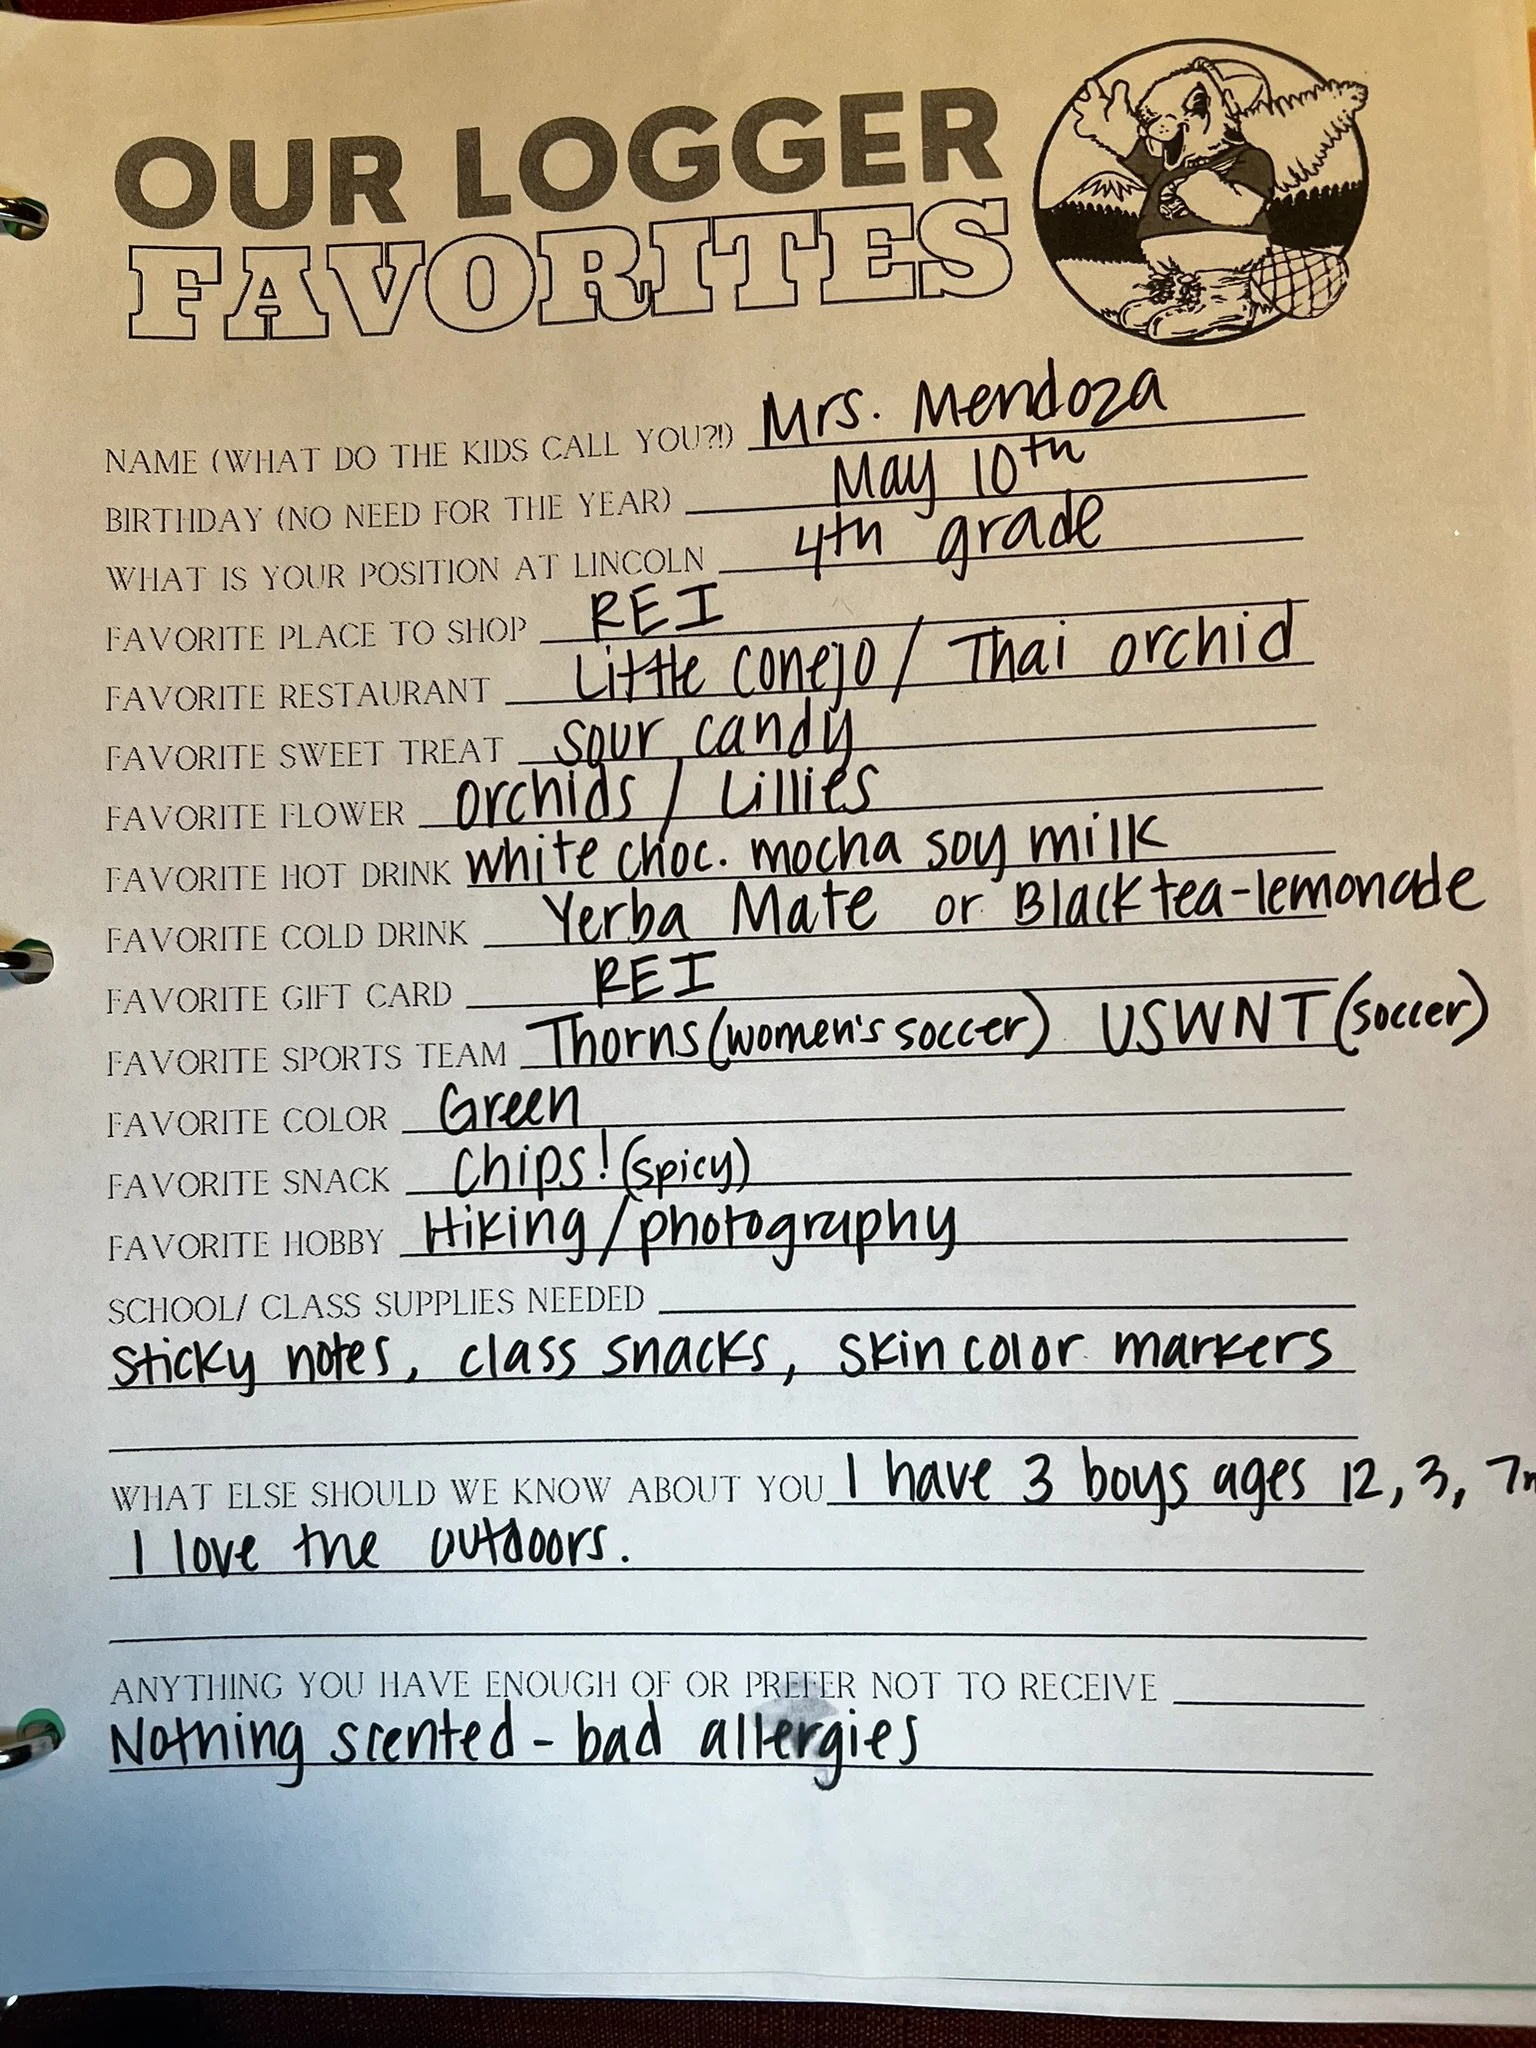 OUR LOGGER
FAVORITES
NAME (WHAT DO THE KIDS CALL YOU?!) Mrs. Mendoza
BIRTHDAY (NO NEED FOR THE YEAR) May 10th
WHAT IS YOUR POSITION AT LINCOLN 4th grade
FAVORITE PLACE TO SHOP REI
FAVORITE RESTAURANT Little Conejo / Thai orchid
FAVORITE SWEET TREAT sour candy
FAVORITE FLOWER orchids / Lillies
FAVORITE HOT DRINK white choc. mocha soy milk
FAVORITE COLD DRINK Yerba Mate or Black tea-lemonade
FAVORITE GIFT CARD REI
FAVORITE SPORTS TEAM Thorns (women's soccer) USWNT (soccer)
FAVORITE COLOR Green
FAVORITE SNACK Chips! (spicy)
FAVORITE HOBBY Hiking / photography
SCHOOL/ CLASS SUPPLIES NEEDED
sticky notes, class snacks, skin color markers
WHAT ELSE SHOULD WE KNOW ABOUT YOU I have 3 boys ages 12, 3,
I love the outdoors.
ANYTHING YOU HAVE ENOUGH OF OR PREFER NOT TO RECEIVE
Nothing scented - bad allergies